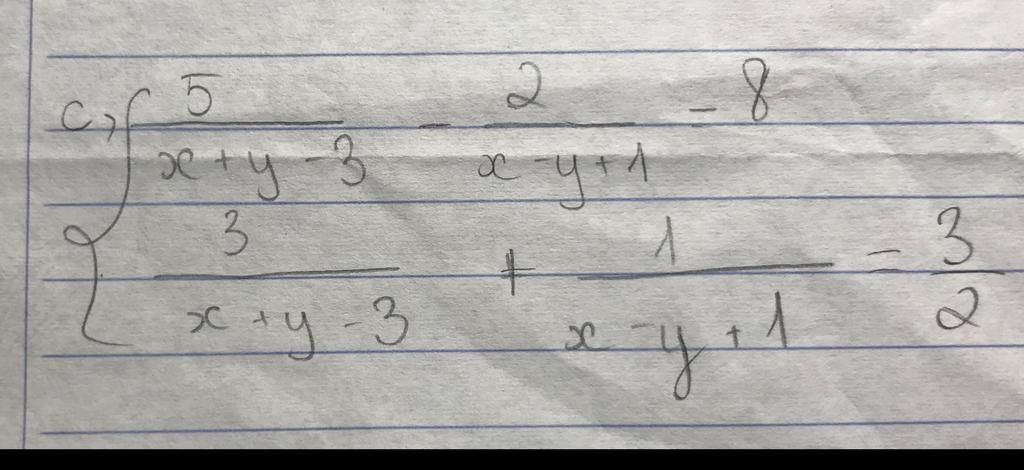 c, { 5/(x+y-3) - 2/(x-y+1) = 8
3/(x+y-3) + 1/(x-y+1) = 3/2